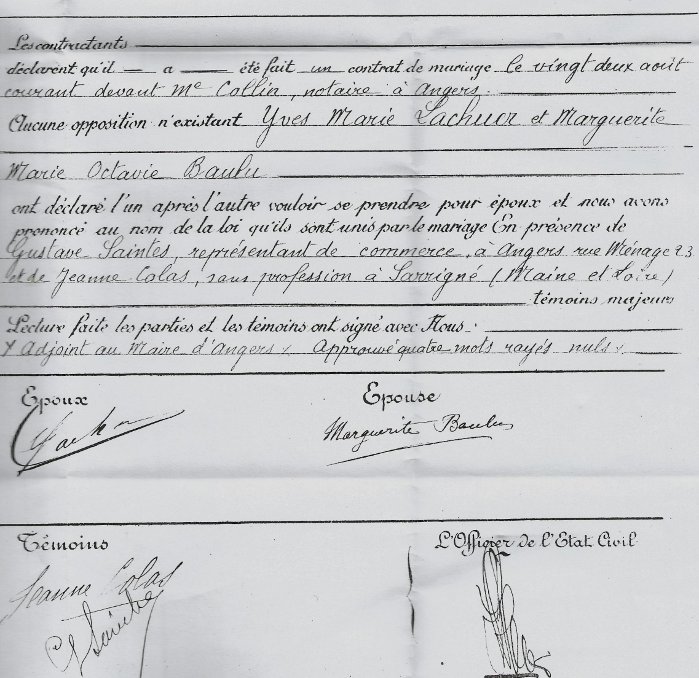 Les contractants
déclarent qu'il — a — été fait un contrat de mariage le vingt deux août
courant devant Me Collin, notaire à Angers.
Aucune opposition n'existant Yves Marie Lachuer et Marguerite
Marie Octavie Baulu
ont déclaré l'un après l'autre vouloir se prendre pour époux et nous avons
prononcé au nom de la loi qu'ils sont unis par le mariage En présence de
Gustave Saintes, représentant de commerce, à Angers rue Ménage 23
et de Jeanne Colas, sans profession à Sarrigné (Maine et Loire)
témoins majeurs
Lecture faite les parties et les témoins ont signé avec Nous.
Adjoint au Maire d'Angers. Approuvé quatre mots rayés nuls.
Epoux
Epouse
Marguerite Baulu
Témoins
L'Officier de l'Etat Civil
Jeanne Colas
G Saintes